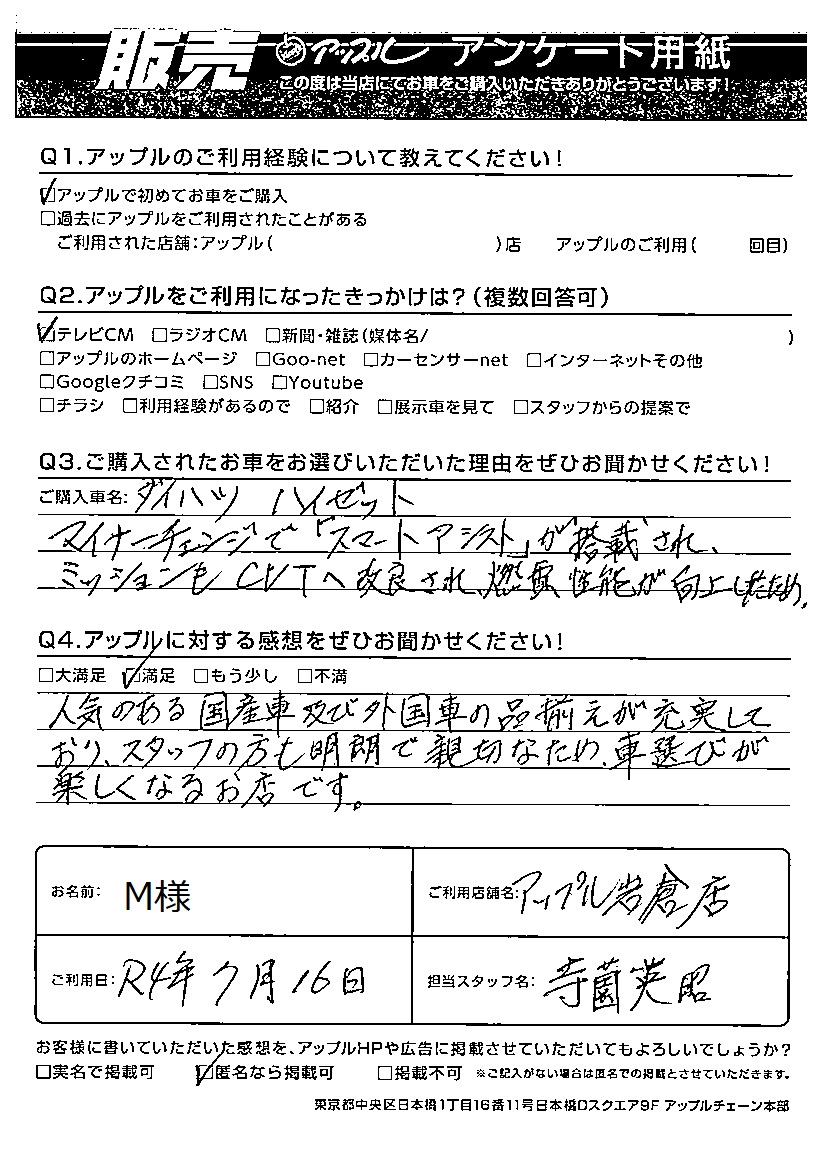 販売 アップル アンケート用紙
この度は当店にてお車をご購入いただきありがとうございます!
Q1.アップルのご利用経験について教えてください!
☑アップルで初めてお車をご購入
□過去にアップルをご利用されたことがある
ご利用された店舗:アップル( )店 アップルのご利用( 回目)
Q2.アップルをご利用になったきっかけは?(複数回答可)
☑テレビCM □ラジオCM □新聞・雑誌(媒体名/ )
□アップルのホームページ □Goo-net □カーセンサーnet □インターネットその他
□Googleクチコミ □SNS □Youtube
□チラシ □利用経験があるので □紹介 □展示車を見て □スタッフからの提案で
Q3.ご購入されたお車をお選びいただいた理由をぜひお聞かせください!
ご購入車名: ダイハツ ハイゼット
マイナーチェンジで「スマートアシスト」が搭載され、
ミッションもCVTへ改良され、燃費性能が向上したため。
Q4.アップルに対する感想をぜひお聞かせください!
□大満足 ☑満足 □もう少し □不満
人気のある国産車及び外国車の品揃えが充実して
おり、スタッフの方も明朗で親切なため、車選びが
楽しくなるお店です。
お名前: M様
ご利用店舗名: アップル岩倉店
ご利用日: R4年7月16日
担当スタッフ名: 寺薗英昭
お客様に書いていただいた感想を、アップルHPや広告に掲載させていただいてもよろしいでしょうか?
□実名で掲載可 ☑匿名なら掲載可 □掲載不可 ※ご記入がない場合は匿名での掲載とさせていただきます。
東京都中央区日本橋1丁目16番11号日本橋Dスクエア9F アップルチェーン本部